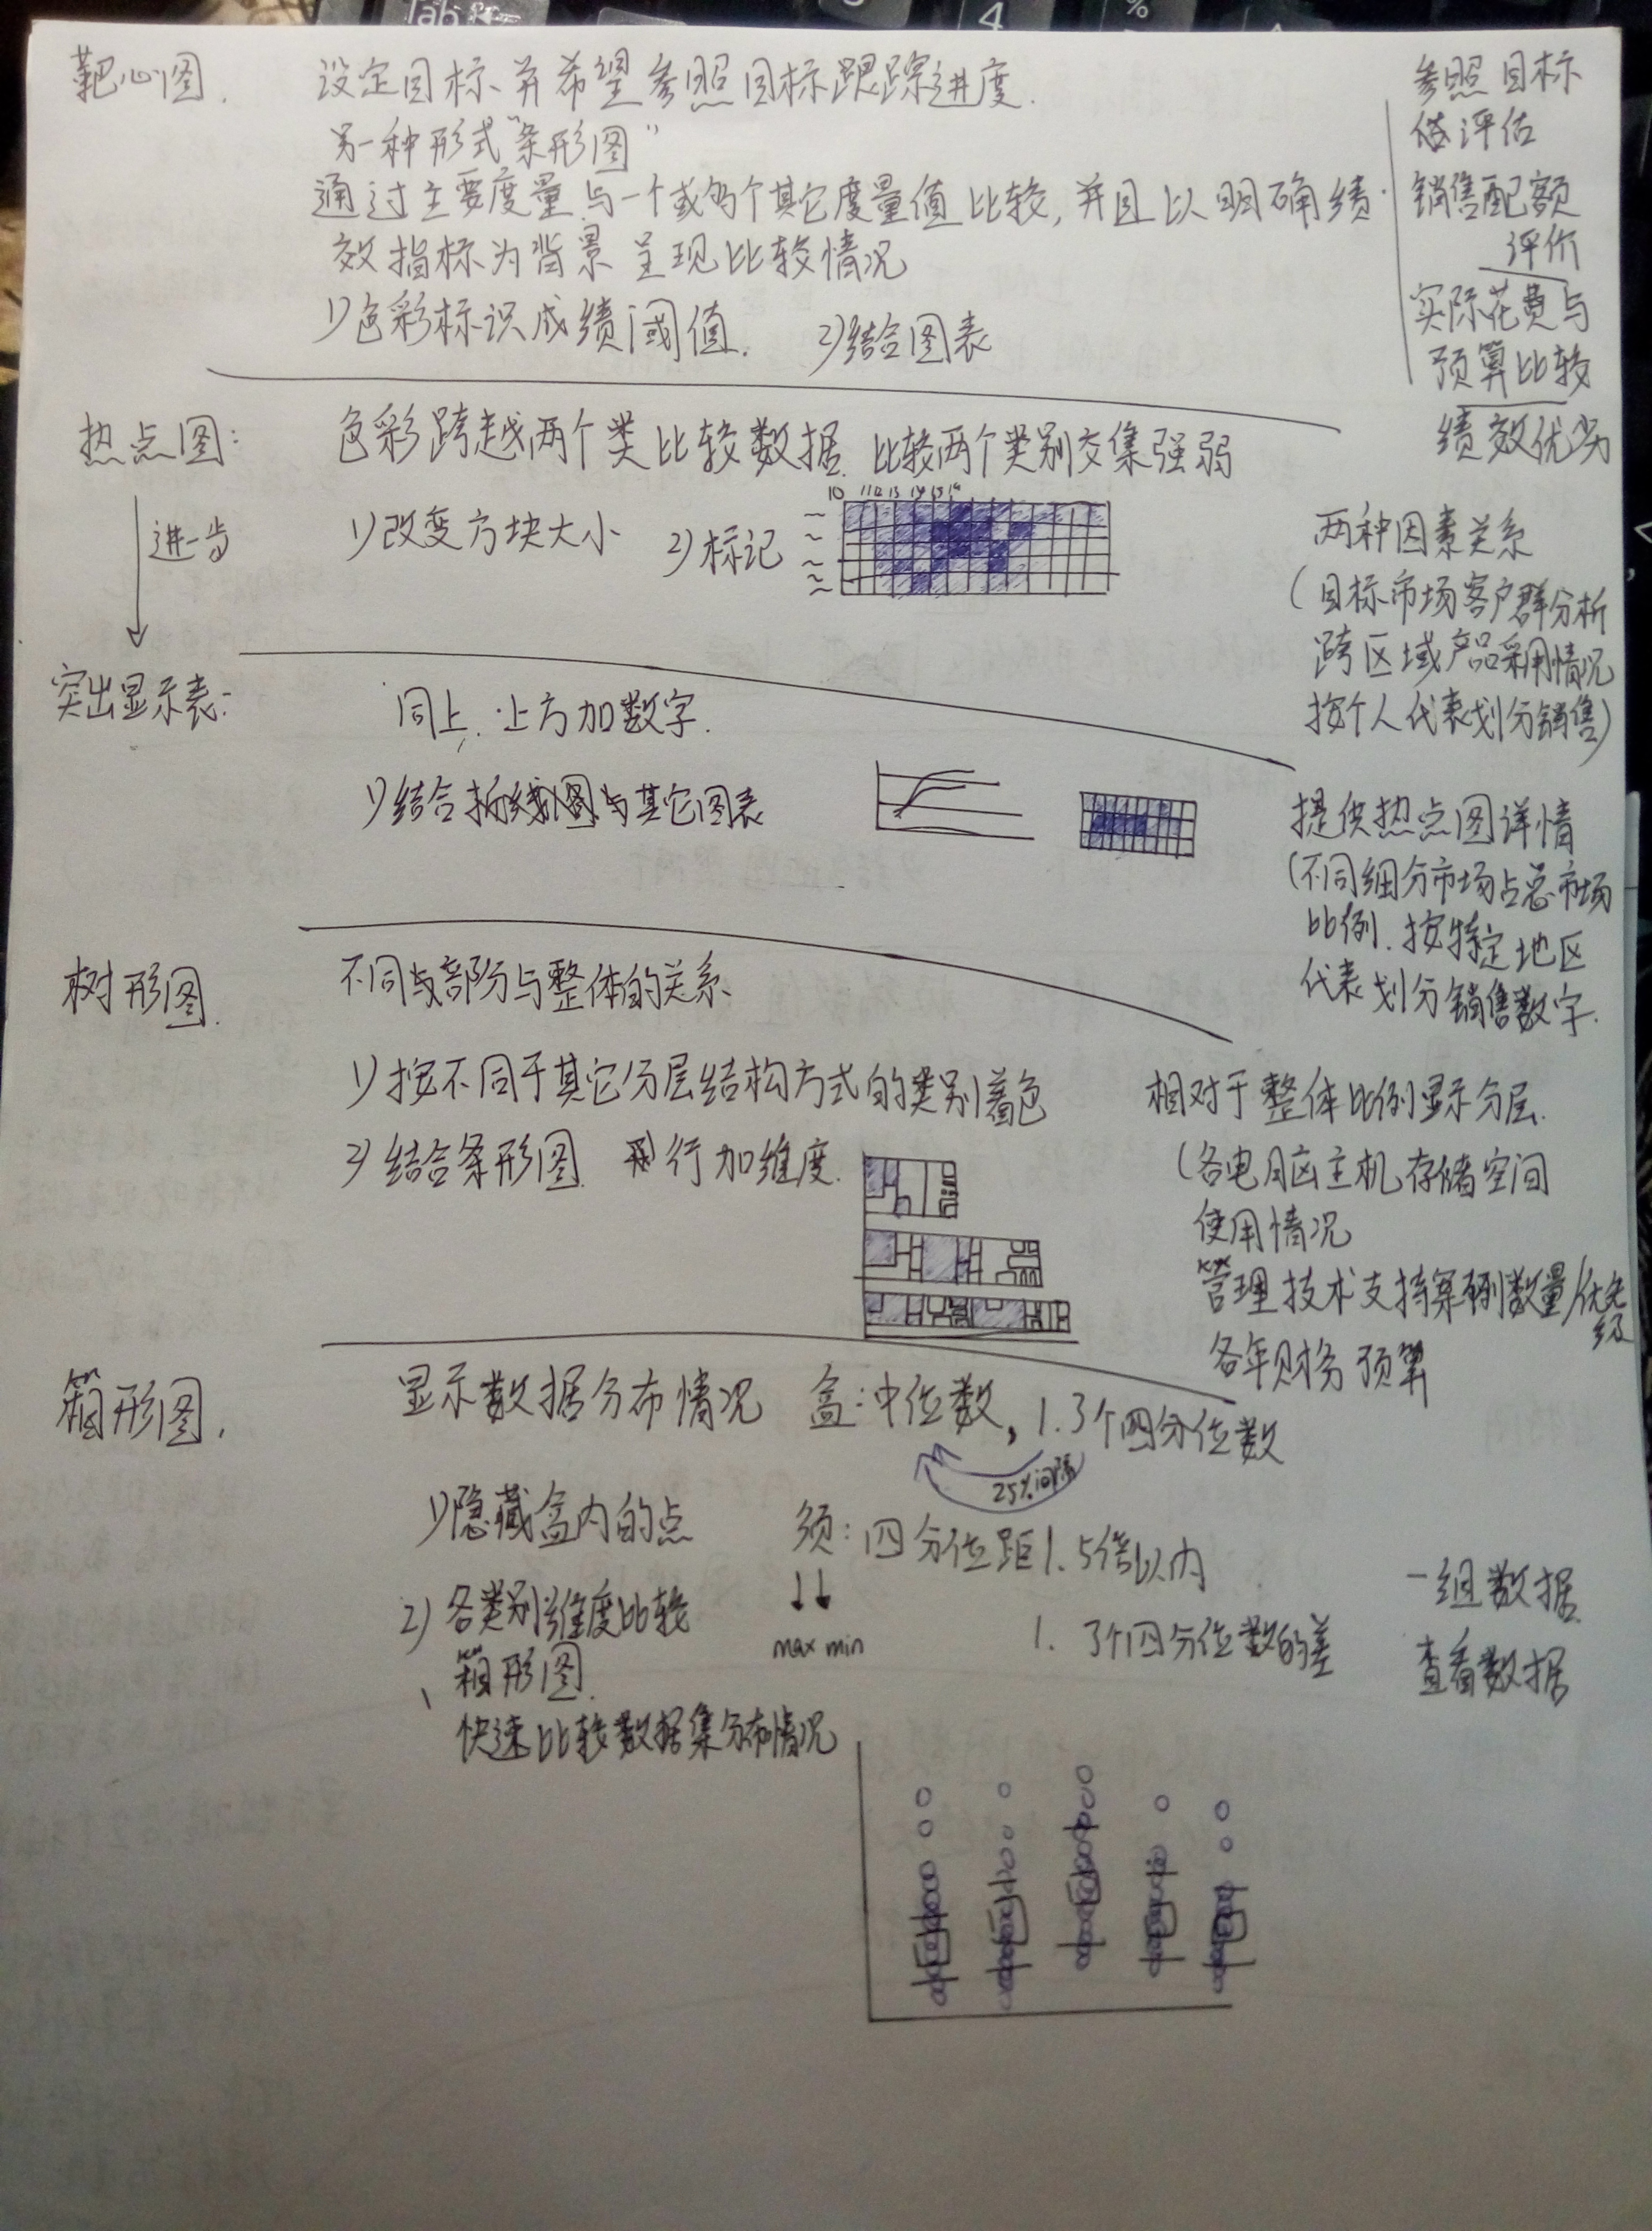 靶心图.
设定目标、并希望参照目标跟踪进度.
另一种形式"条形图"
通过主要度量与一个或多个其它度量值比较,并且以明确绩
效指标为背景呈现比较情况
1)色彩标识成绩阈值. 2)结合图表
参照目标
评估
销售配额
评价
实际花费与
预算比较
绩效优劣
热点图:
色彩跨越两个类比较数据.比较两个类别交集强弱
进一步
1)改变方块大小 2)标记
10 11 12 13 14 15 16
两种因素关系
(目标市场客户群分析
跨区域产品采用情况
按个人代表划分销售)
突出显示表:
同上.上方加数字.
1)结合折线图与其它图表
提供热点图详情
(不同细分市场占总市场
比例.按特定地区
代表划分销售数字.
树形图.
不同与部分与整体的关系
1)按不同于其它分层结构方式的类别着色
2)结合条形图 行加维度.
相对于整体比例显示分层.
(各电脑主机存储空间
使用情况
管理技术支持案例数量/优先级
各年财务预算
箱形图.
显示数据分布情况 盒:中位数,1.3个四分位数
25%间隔
1)隐藏盒内的点 须:四分位距1.5倍以内
max min
1. 3个四分位数的差
2)各类别维度比较
箱形图.
快速比较数据集分布情况
一组数据
查看数据